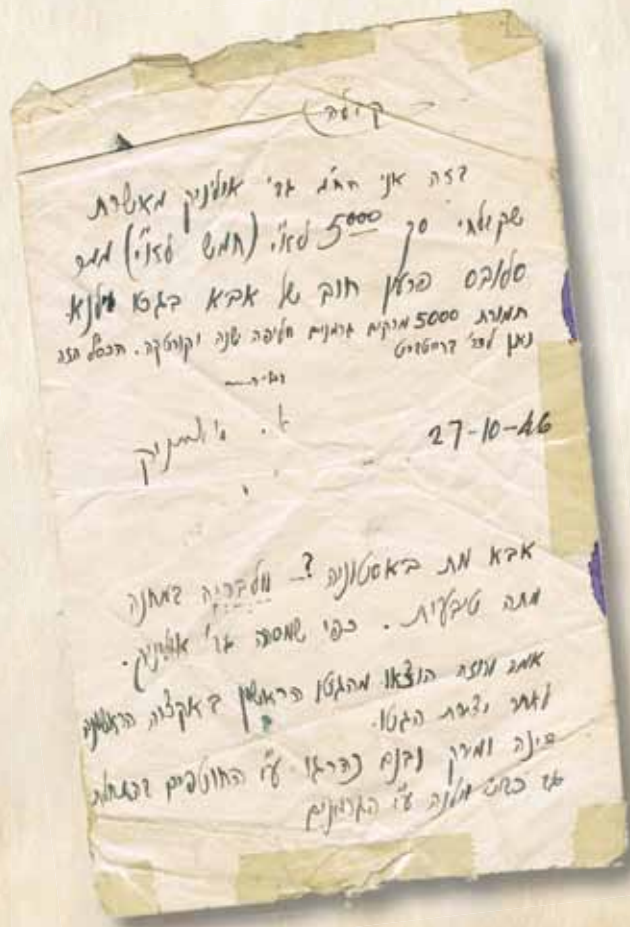 קבלה
בזה אני הח"מ גב' אולניק מאשרת
שקבלתי סך 5000 לא"י (חמש לא"י) ממר
פרעון חוב של אבא בגטו וילנא
תמורת 5000 מרקים גרמנים חליפה שנה וקורטקה. הכסף הזה
נתן לגב'
א. אולניק
27-10-46
אבא מת באסטוניה ? במחנה
מתה טבעית. כפי שמסרה גב' אולניק.
אמא ורוזה הוצאו מהגטו הראשון באקציה הראשונה
לאחר יצירת הגטו.
בינה ומרק ובנם נהרגו ע"י החוטפים בהתחלת
כבוש וילנה ע"י הגרמנים